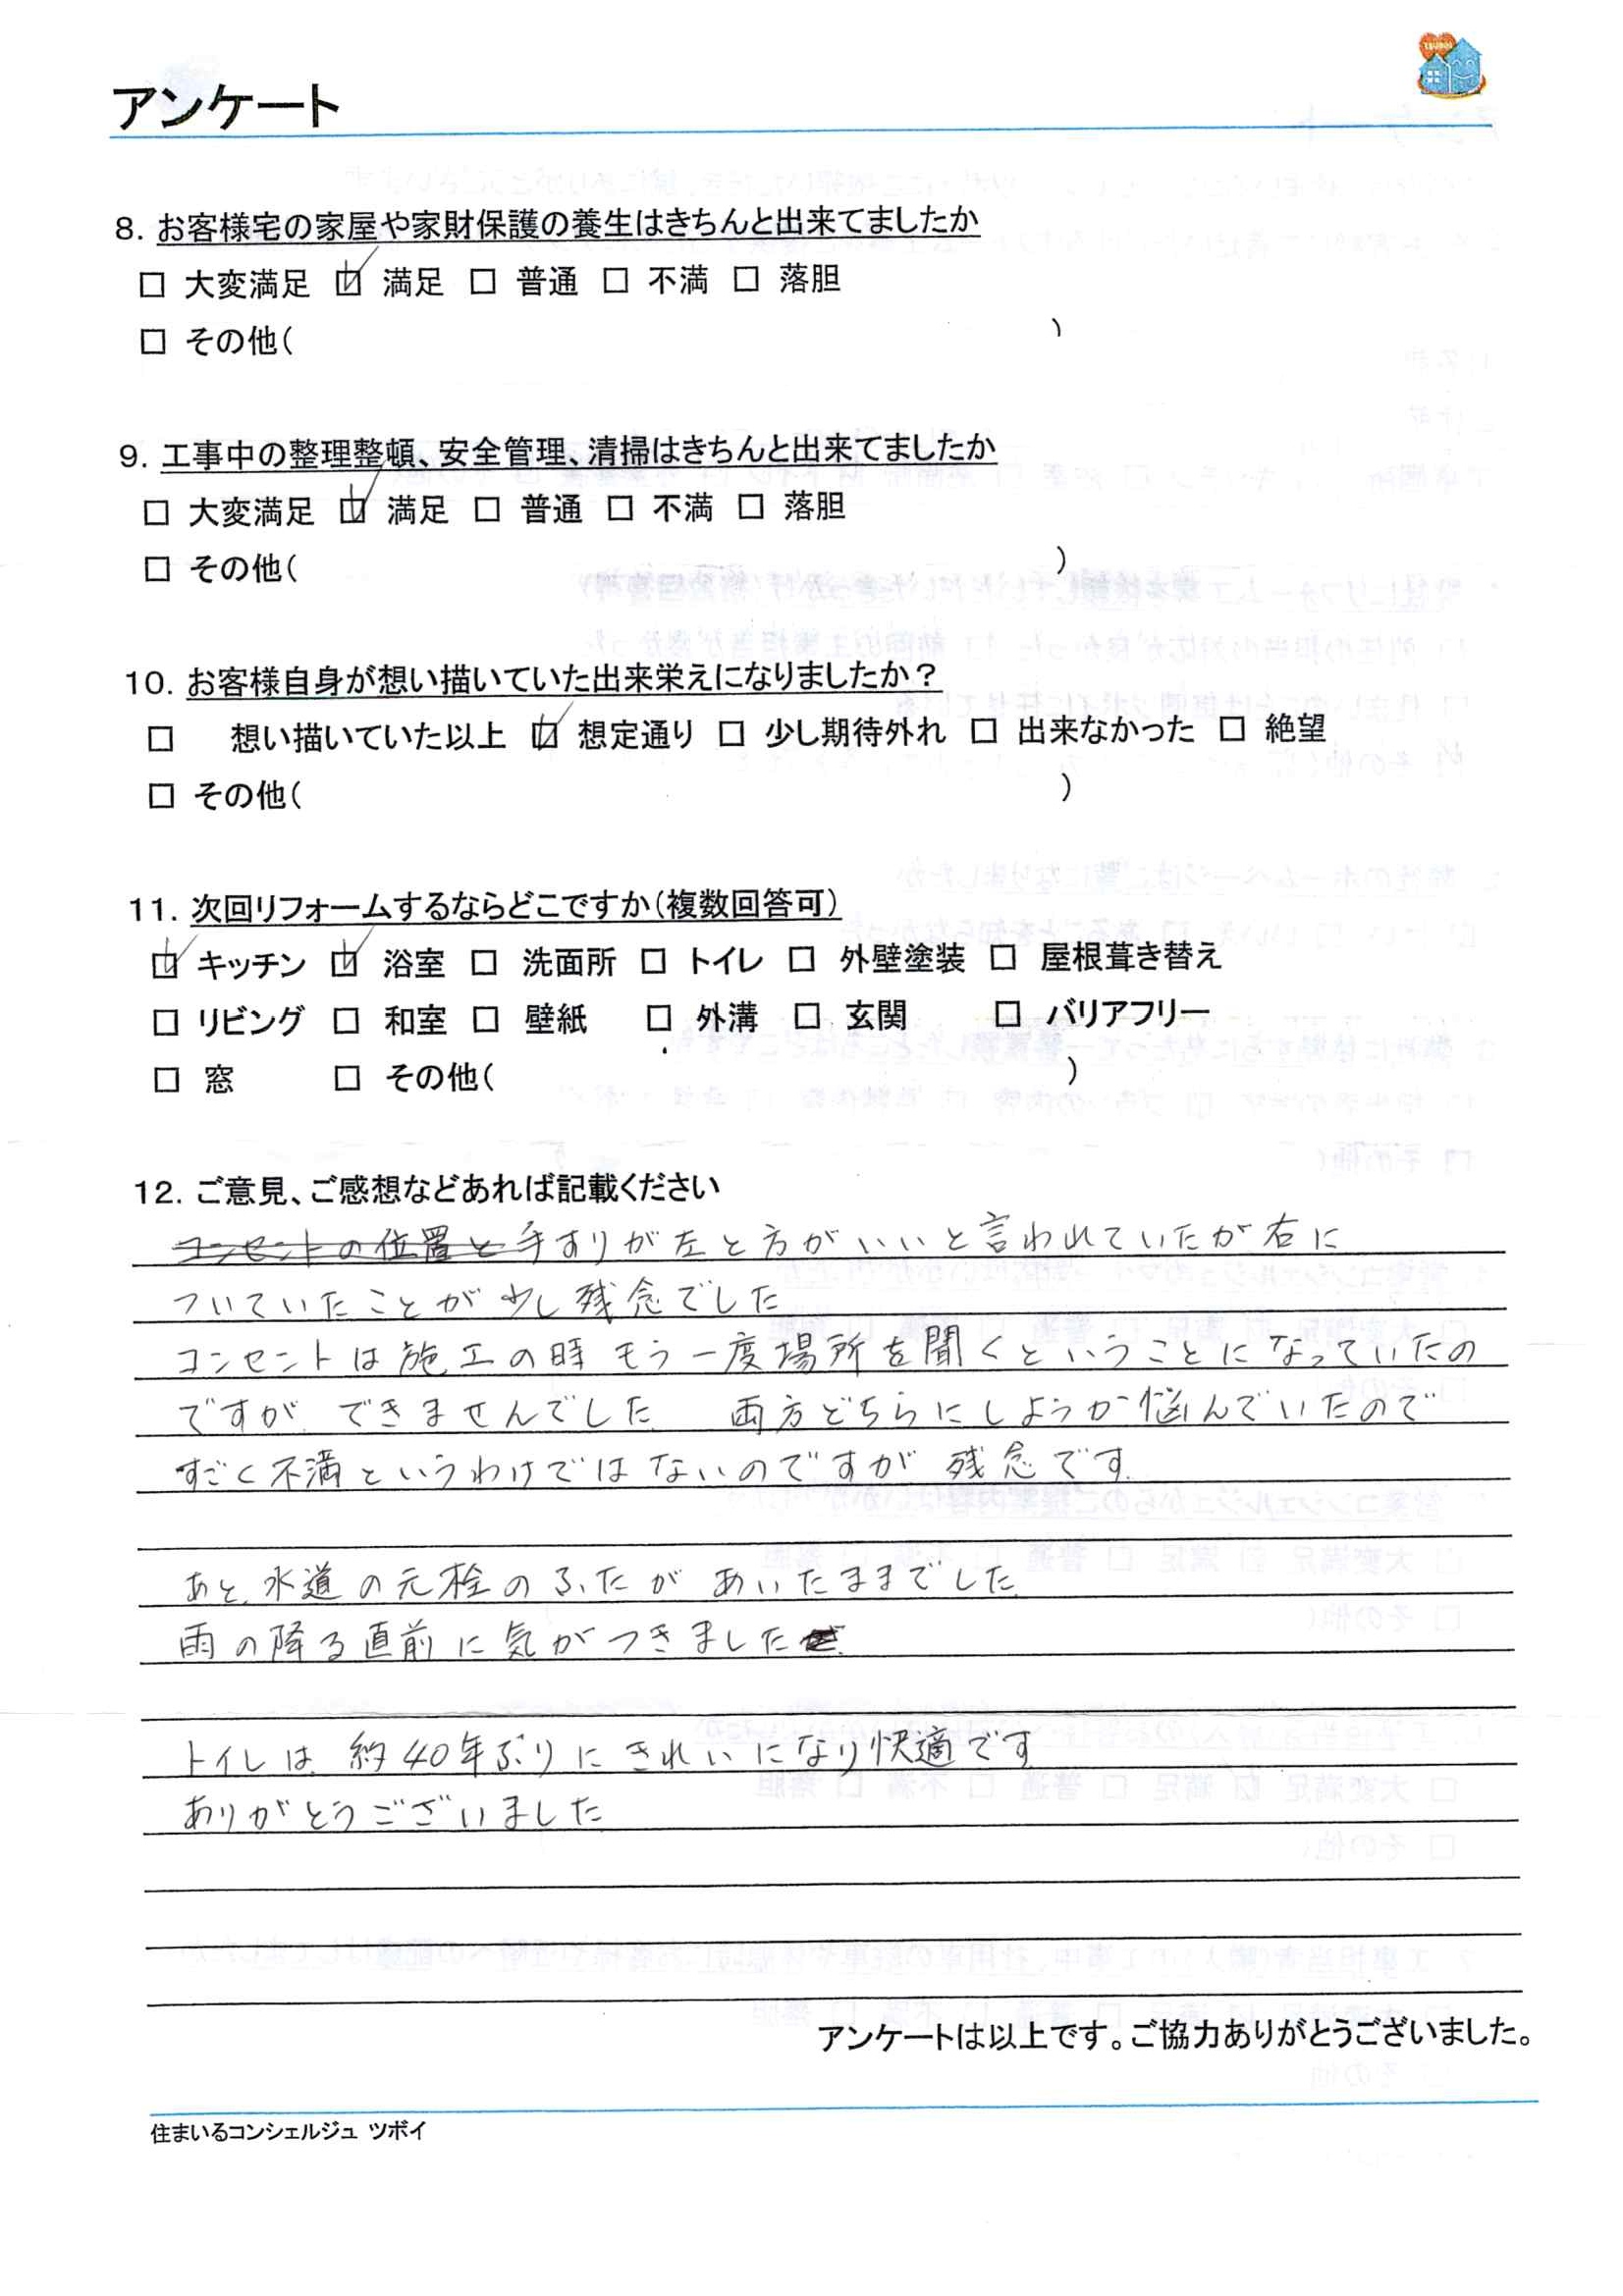 アンケート
8. お客様宅の家屋や家財保護の養生はきちんと出来てましたか
□ 大変満足 ☑ 満足 □ 普通 □ 不満 □ 落胆
□ その他( )
9. 工事中の整理整頓、安全管理、清掃はきちんと出来てましたか
□ 大変満足 ☑ 満足 □ 普通 □ 不満 □ 落胆
□ その他( )
10. お客様自身が想い描いていた出来栄えになりましたか？
□ 想い描いていた以上 ☑ 想定通り □ 少し期待外れ □ 出来なかった □ 絶望
□ その他( )
11. 次回リフォームするならどこですか(複数回答可)
☑ キッチン ☑ 浴室 □ 洗面所 □ トイレ □ 外壁塗装 □ 屋根葺き替え
□ リビング □ 和室 □ 壁紙 □ 外溝 □ 玄関 □ バリアフリー
□ 窓 □ その他( )
12. ご意見、ご感想などあれば記載ください
コンセントの位置と手すりが左と方がいいと言われていたが右に
ついていたことが少し残念でした
コンセントは施工の時もう一度場所を聞くということになっていたの
ですが、できませんでした 両方どちらにしようか悩んでいたので
すごく不満というわけではないのですが 残念です.
あと、水道の元栓のふたが あいたままでした.
雨の降る直前に気がつきました
トイレは、約40年ぶりに きれいになり快適です
ありがとうございました
アンケートは以上です。ご協力ありがとうございました。
住まいるコンシェルジュ ツボイ